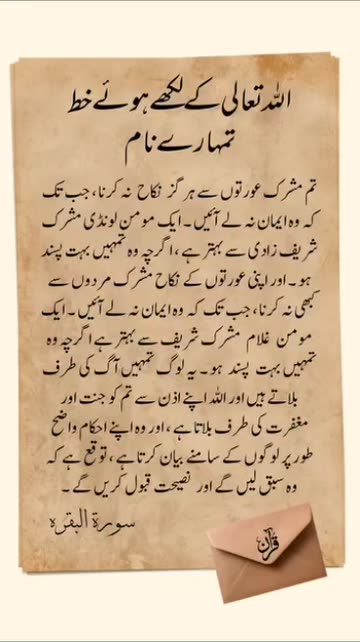 اللہ تعالیٰ کے لکھے ہوئے خط
تمہارے نام
تم مشرک عورتوں سے ہرگز نکاح نہ کرنا، جب تک
کہ وہ ایمان نہ لے آئیں۔ ایک مومن لونڈی مشرک
شریف زادی سے بہتر ہے، اگرچہ وہ تمہیں بہت پسند
ہو۔ اور اپنی عورتوں کے نکاح مشرک مردوں سے
کبھی نہ کرنا، جب تک کہ وہ ایمان نہ لے آئیں۔ ایک
مومن غلام مشرک شریف سے بہتر ہے اگرچہ وہ
تمہیں بہت پسند ہو۔ یہ لوگ تمہیں آگ کی طرف
بلاتے ہیں اور اللہ اپنے اذن سے تم کو جنت اور
مغفرت کی طرف بلاتا ہے، اور وہ اپنے احکام واضح
طور پر لوگوں کے سامنے بیان کرتا ہے، توقع ہے کہ
وہ سبق لیں گے اور نصیحت قبول کریں گے۔
سورۃ البقرہ
قرآن